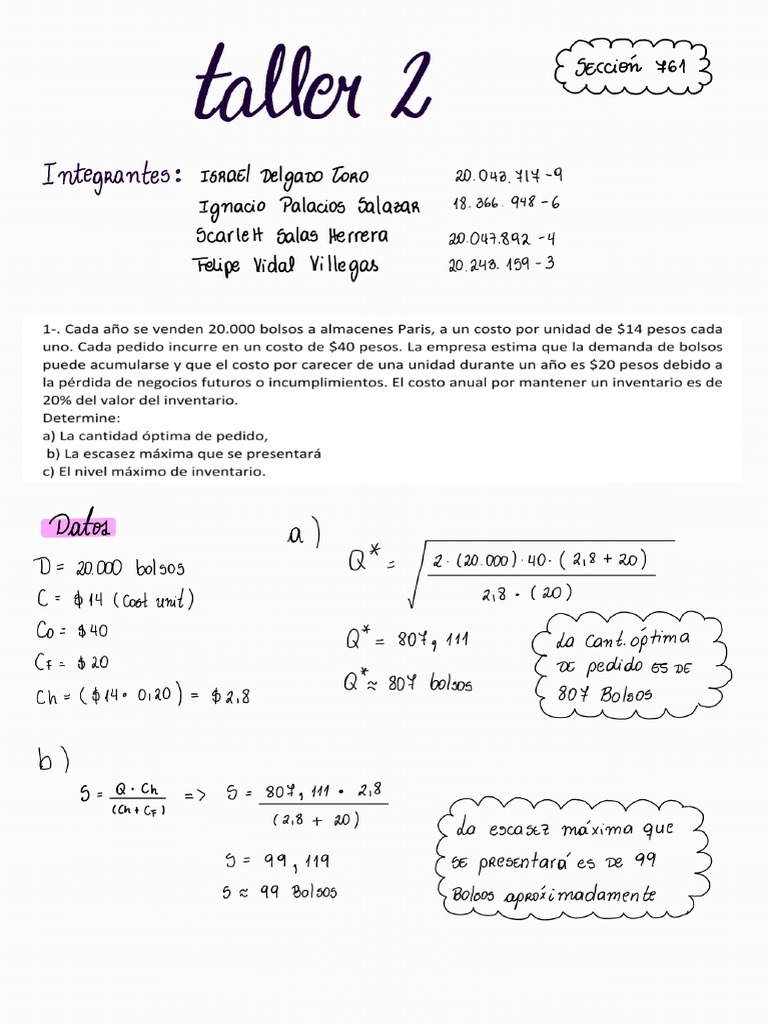 taller 2
Sección 761
Integrantes:
Israel Delgado Toro 20.043.717-9
Ignacio Palacios Salazar 18.366.948-6
Scarlett Salas Herrera 20.047.892-4
Felipe Vidal Villegas 20.243.159-3
1-. Cada año se venden 20.000 bolsos a almacenes Paris, a un costo por unidad de $14 pesos cada
uno. Cada pedido incurre en un costo de $40 pesos. La empresa estima que la demanda de bolsos
puede acumularse y que el costo por carecer de una unidad durante un año es $20 pesos debido a
la pérdida de negocios futuros o incumplimientos. El costo anual por mantener un inventario es de
20% del valor del inventario.
Determine:
a) La cantidad óptima de pedido,
b) La escasez máxima que se presentará
c) El nivel máximo de inventario.
Datos
D = 20.000 bolsos
C = $14 (Cost unit)
Co = $40
CF = $20
Ch = ($14 • 0,20) = $2,8
a)
Q* = √ 2 · (20.000) · 40 · (2,8 + 20)
2,8 • (20)
Q* = 807,111
Q* ≈ 807 bolsos
La cant. óptima
de pedido es de
807 Bolsos
b)
S = Q · Ch / (Ch + CF) => S = 807,111 • 2,8 / (2,8 + 20)
S = 99,119
S ≈ 99 Bolsos
La escasez máxima que
se presentará es de 99
Bolsos aproximadamente